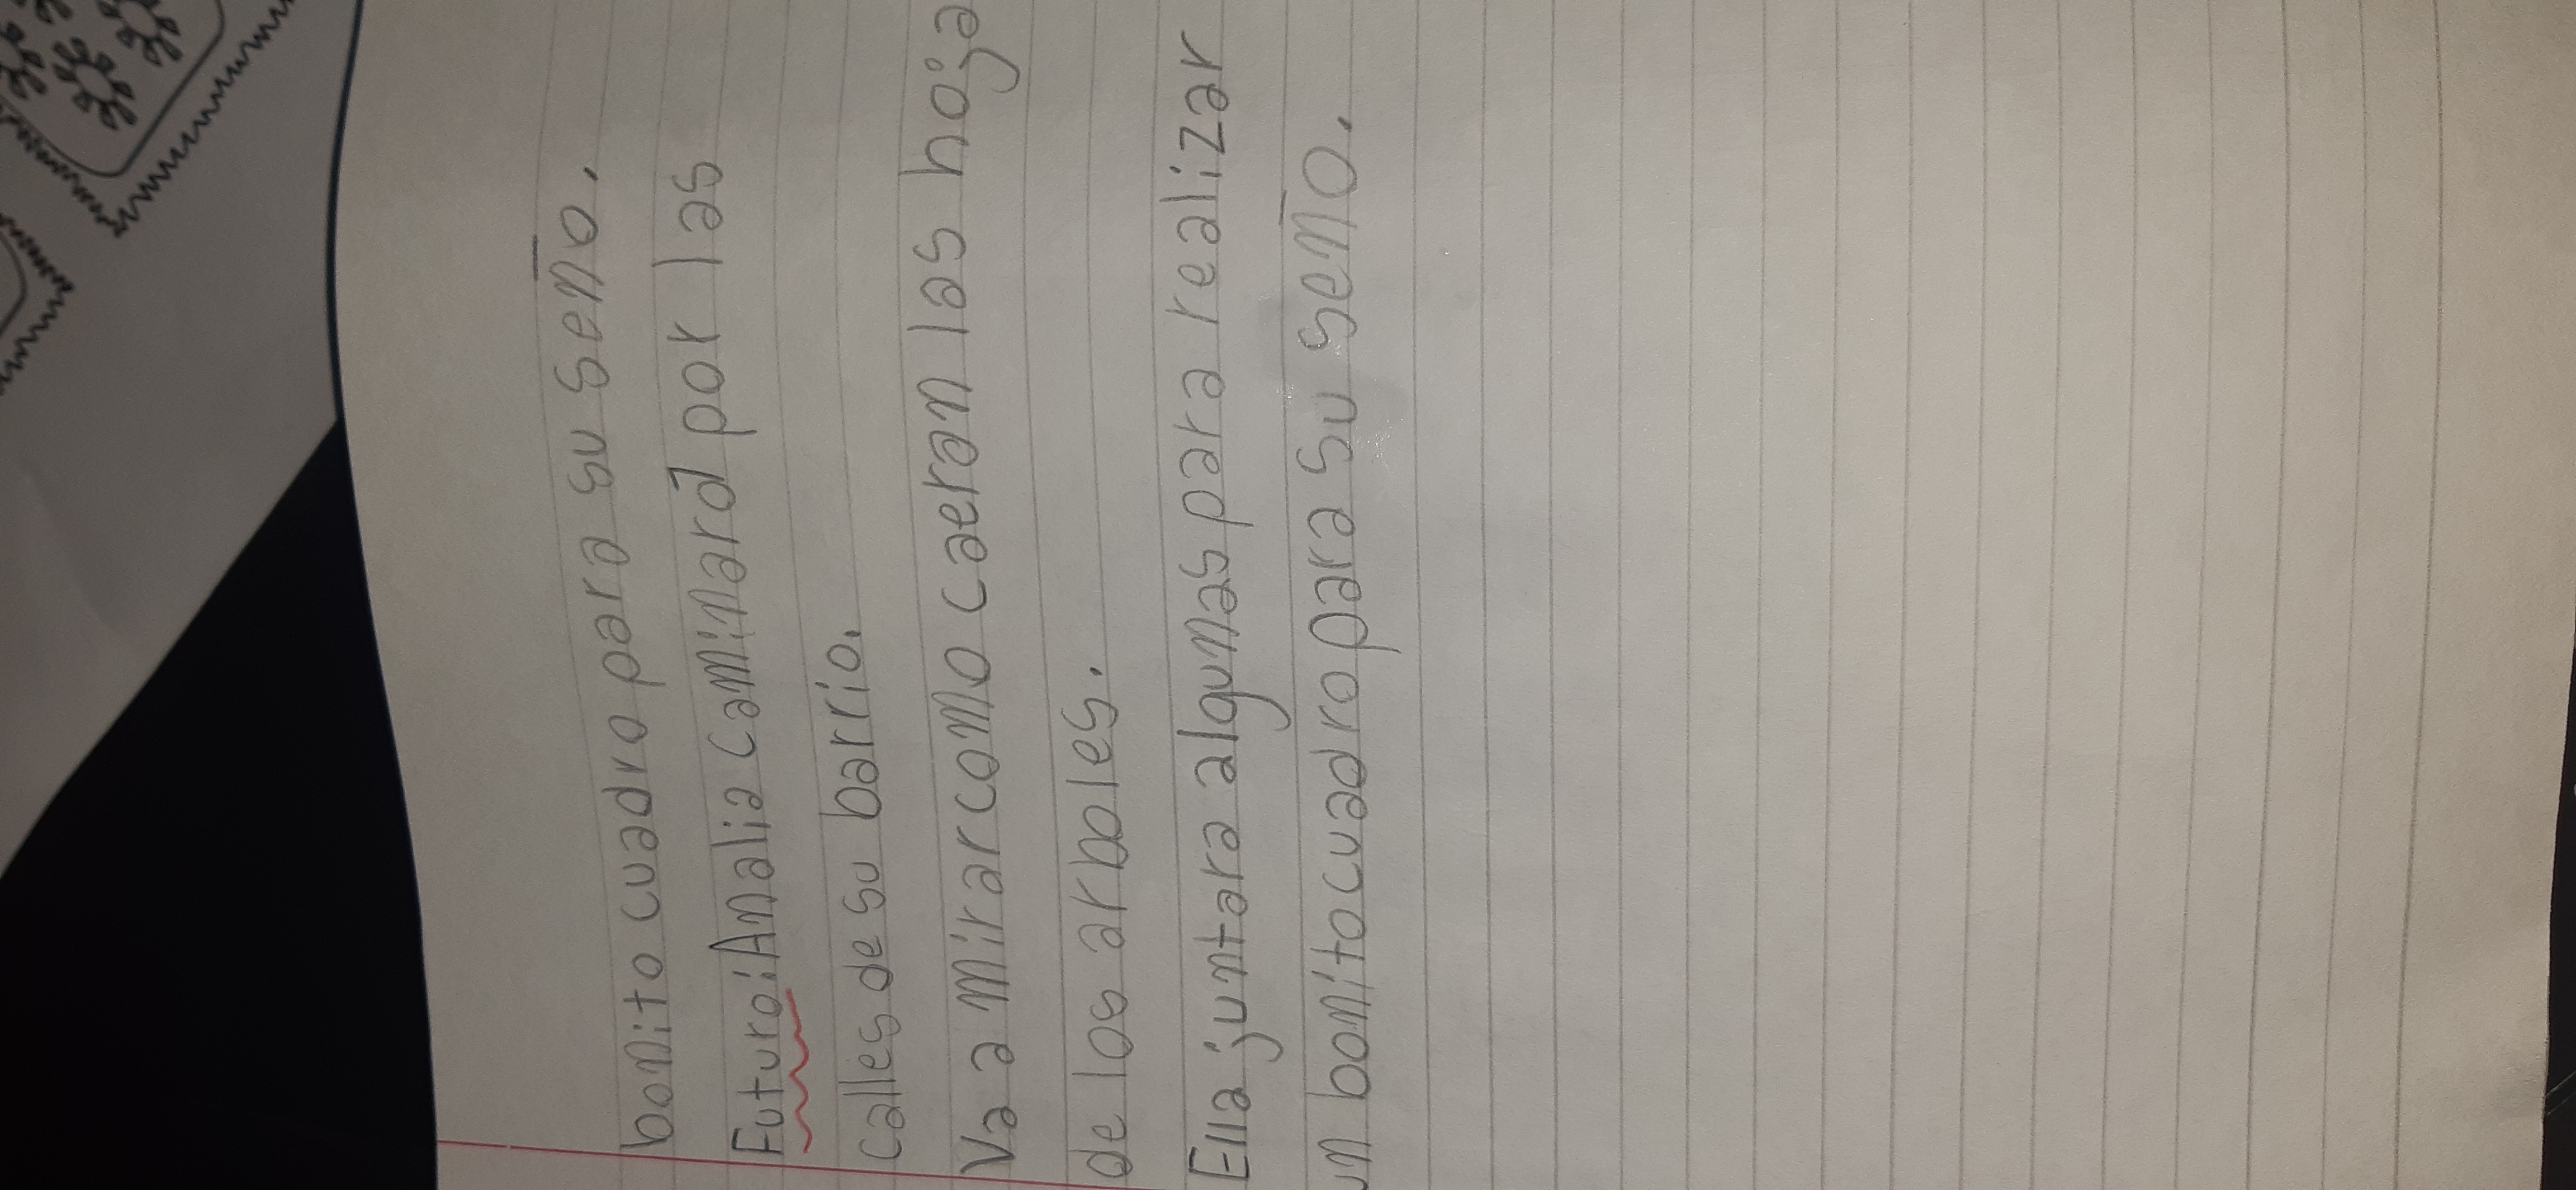 bonito cuadro para su seño.
Futuro: Amalia caminará por las
calles de su barrio.
Va a mirar como caeran las hoja
de los arboles.
Ella juntara algunas para realizar
un bonito cuadro para su seño.